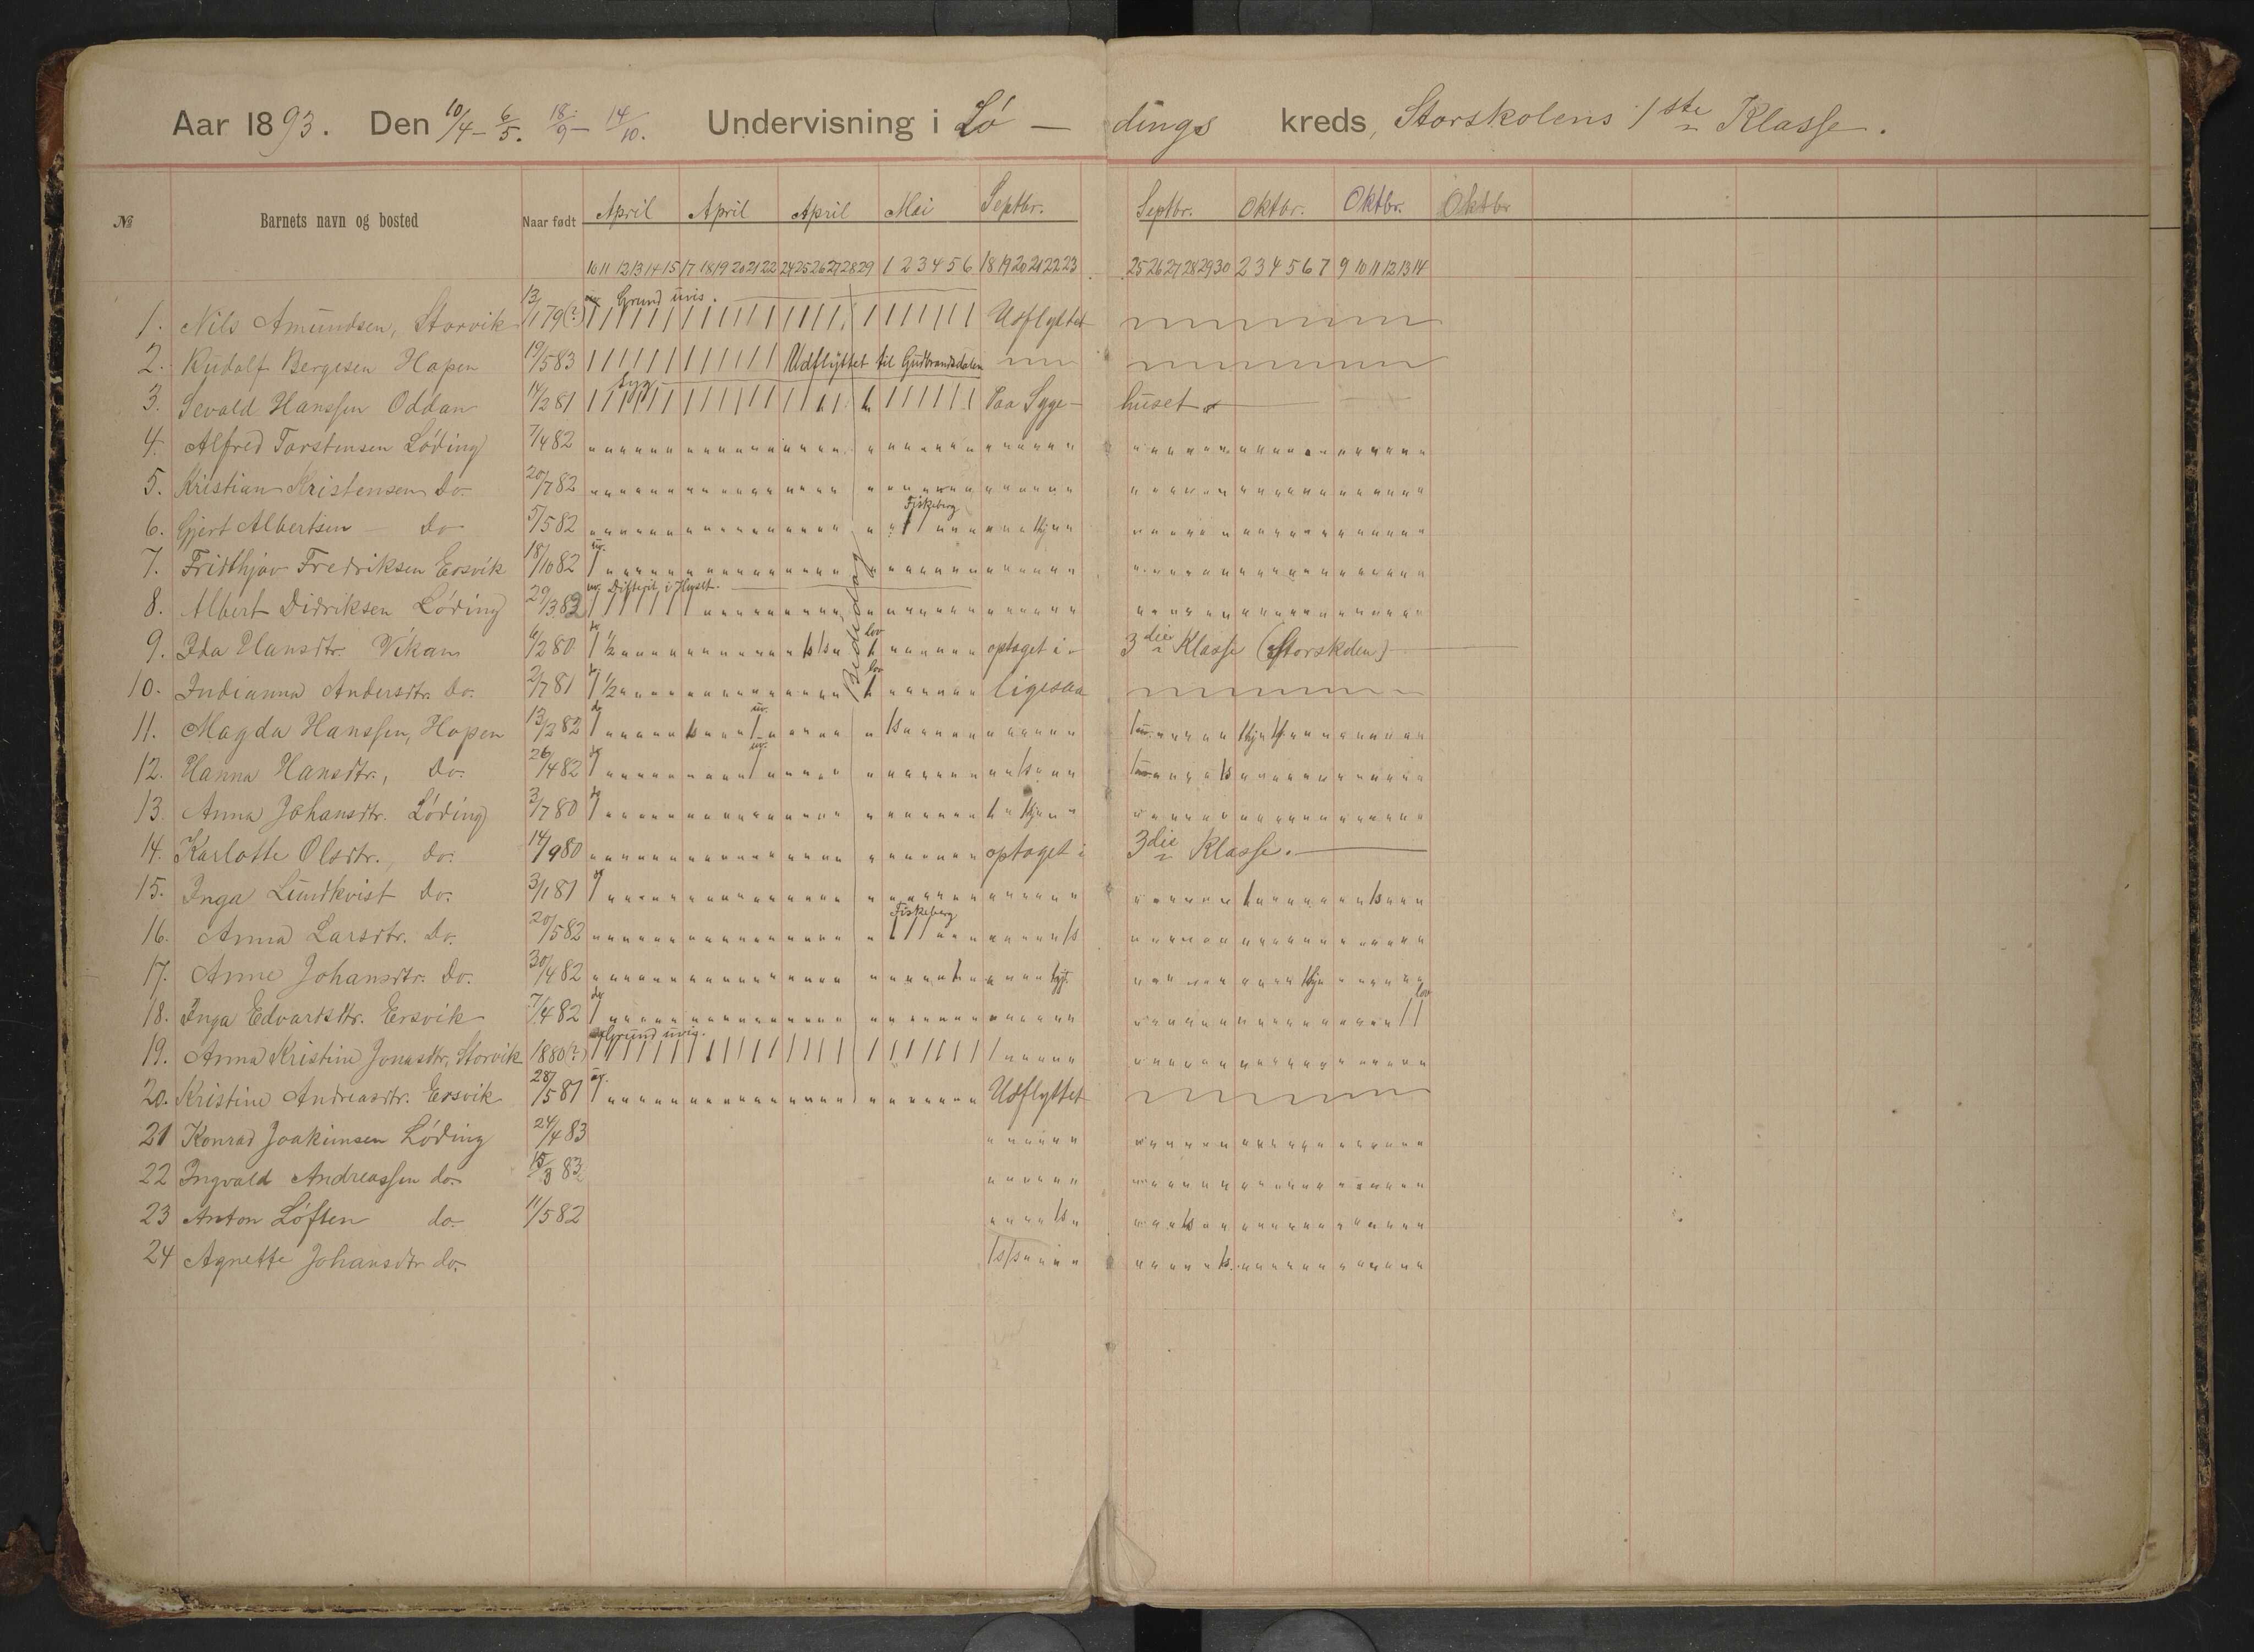 Aar 1893. Den 10/4 - 6/5. 18/9 - 14/10. Undervisning i Lø — dings kreds, Storskolens 1ste Klasse.
№ Barnets navn og bosted Naar født April April April Mai Septbr. Septbr. Oktbr. Oktbr. Oktbr
10 11 12 13 14 15 17 18 19 20 21 22 24 25 26 27 28 29 1 2 3 4 5 6 18 19 20 21 22 23 25 26 27 28 29 30 2 3 4 5 6 7 9 10 11 12 13 14
Grund uvis.
1. Nils Amundsen, Storvik 13/1 79(?) Udflyttet
2. Rudolf Bergesen Hopen 19/5 83 Udflyttet til Gudbrandsdalen
Syg
3. Sevald Hanssen Oddan 14/2 81 Paa Syge- huset
4. Alfred Torstensen Løding 7/4 82
5. Kristian Kristensen Do. 20/7 82
Fiskeberg
6. Gjert Albertsen — Do 5/5 82
7. Fridthjov Fredriksen Ersvik 18/10 82
uv. Difterit i Huset.
8. Albert Didriksen Løding 29/3 82
Bededag
lov
9. Ida Hansdtr. Vikan 6/2 80 1/2 optaget i 3die Klasse (Storskolen)
lov
10. Indianna Andersdtr. Do. 2/7 81 1/2 ligesaa
uv.
11. Magda Hanssen, Hopen 13/2 82
uv.
12. Hanna Hansdtr., Do. 26/4 82
13. Anna Johansdtr. Løding 3/7 80
14. Karlotte Olsdtr., Do. 14/9 80 optaget i 3die Klasse.
15. Inga Lundkvist Do. 3/1 81
Fiskeberg
16. Anna Larsdtr. Do. 20/5 82
17. Anne Johansdtr. Do. 30/4 82
lov
18. Inga Edvardsdtr. Ersvik 7/4 82
Grund uvis.
19. Anna Kristine Jonasdtr, Storvik 1880(?)
uv.
20. Kristine Andreasdtr. Ersvik 28/5 81 Udflyttet
21 Konrad Joakimsen Løding 24/4 83
22 Ingvald Andreassen do. 15/3 83
23 Anton Løften do. 11/5 82
24 Agnette Johansdtr do.